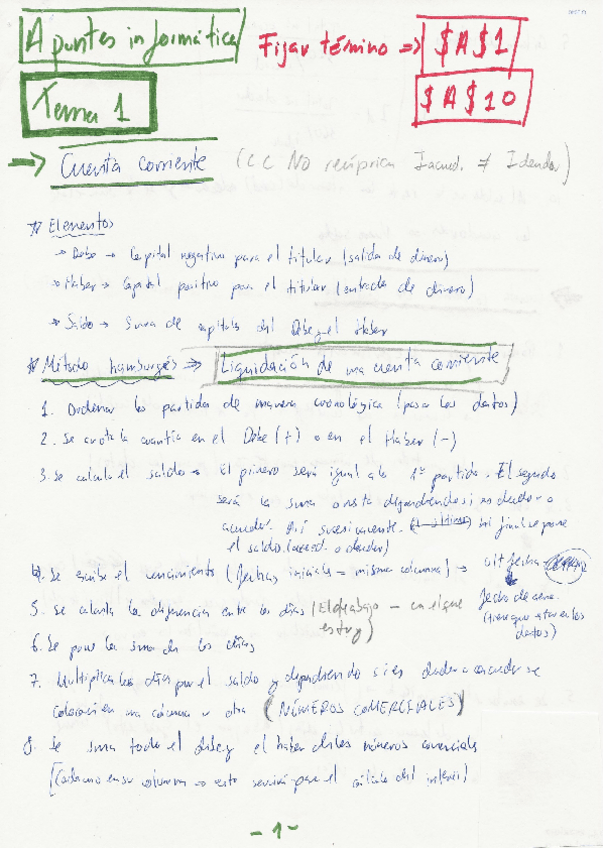 Apuntes informática
Fijar término => $A$1
$A$10
Tema 1
→ Cuenta corriente (CC No recíproca Iacred. ≠ Ideudor)
* Elementos
→ Debe → Capital negativo para el titular (salida de dinero)
→ Haber → Capital positivo para el titular (entrada de dinero)
→ Saldo → Suma de capitales del Debe y el Haber
* Método hamburgés => Liquidación de una cuenta corriente
1. Ordenar las partidas de manera cronológica (pasar los datos)
2. Se anota la cuantía en el Debe (+) o en el Haber (-)
3. Se calcula el saldo → El primero será igual a la 1ª partida. El segundo
será la suma o resta dependiendo si es deudor o
acreedor. Así sucesivamente. Al final se pone
el saldo (acreed. o deudor)
4. Se escribe el vencimiento (fechas iniciales = misma columna) → ult fecha
fecha de cierre
(tiene que estar en los
datos)
5. Se calcula la diferencia entre los días (El de abajo - en el que
estoy)
6. Se pone la suma de los días
7. Multiplica los días por el saldo y dependiendo si es deudor o acreedor se
colocará en una columna u otra (NÚMEROS COMERCIALES)
8. Se suma todo el debe y el haber de los números comerciales
(Cada uno en su columna → esto servirá para el cálculo del interés)
- 1 -